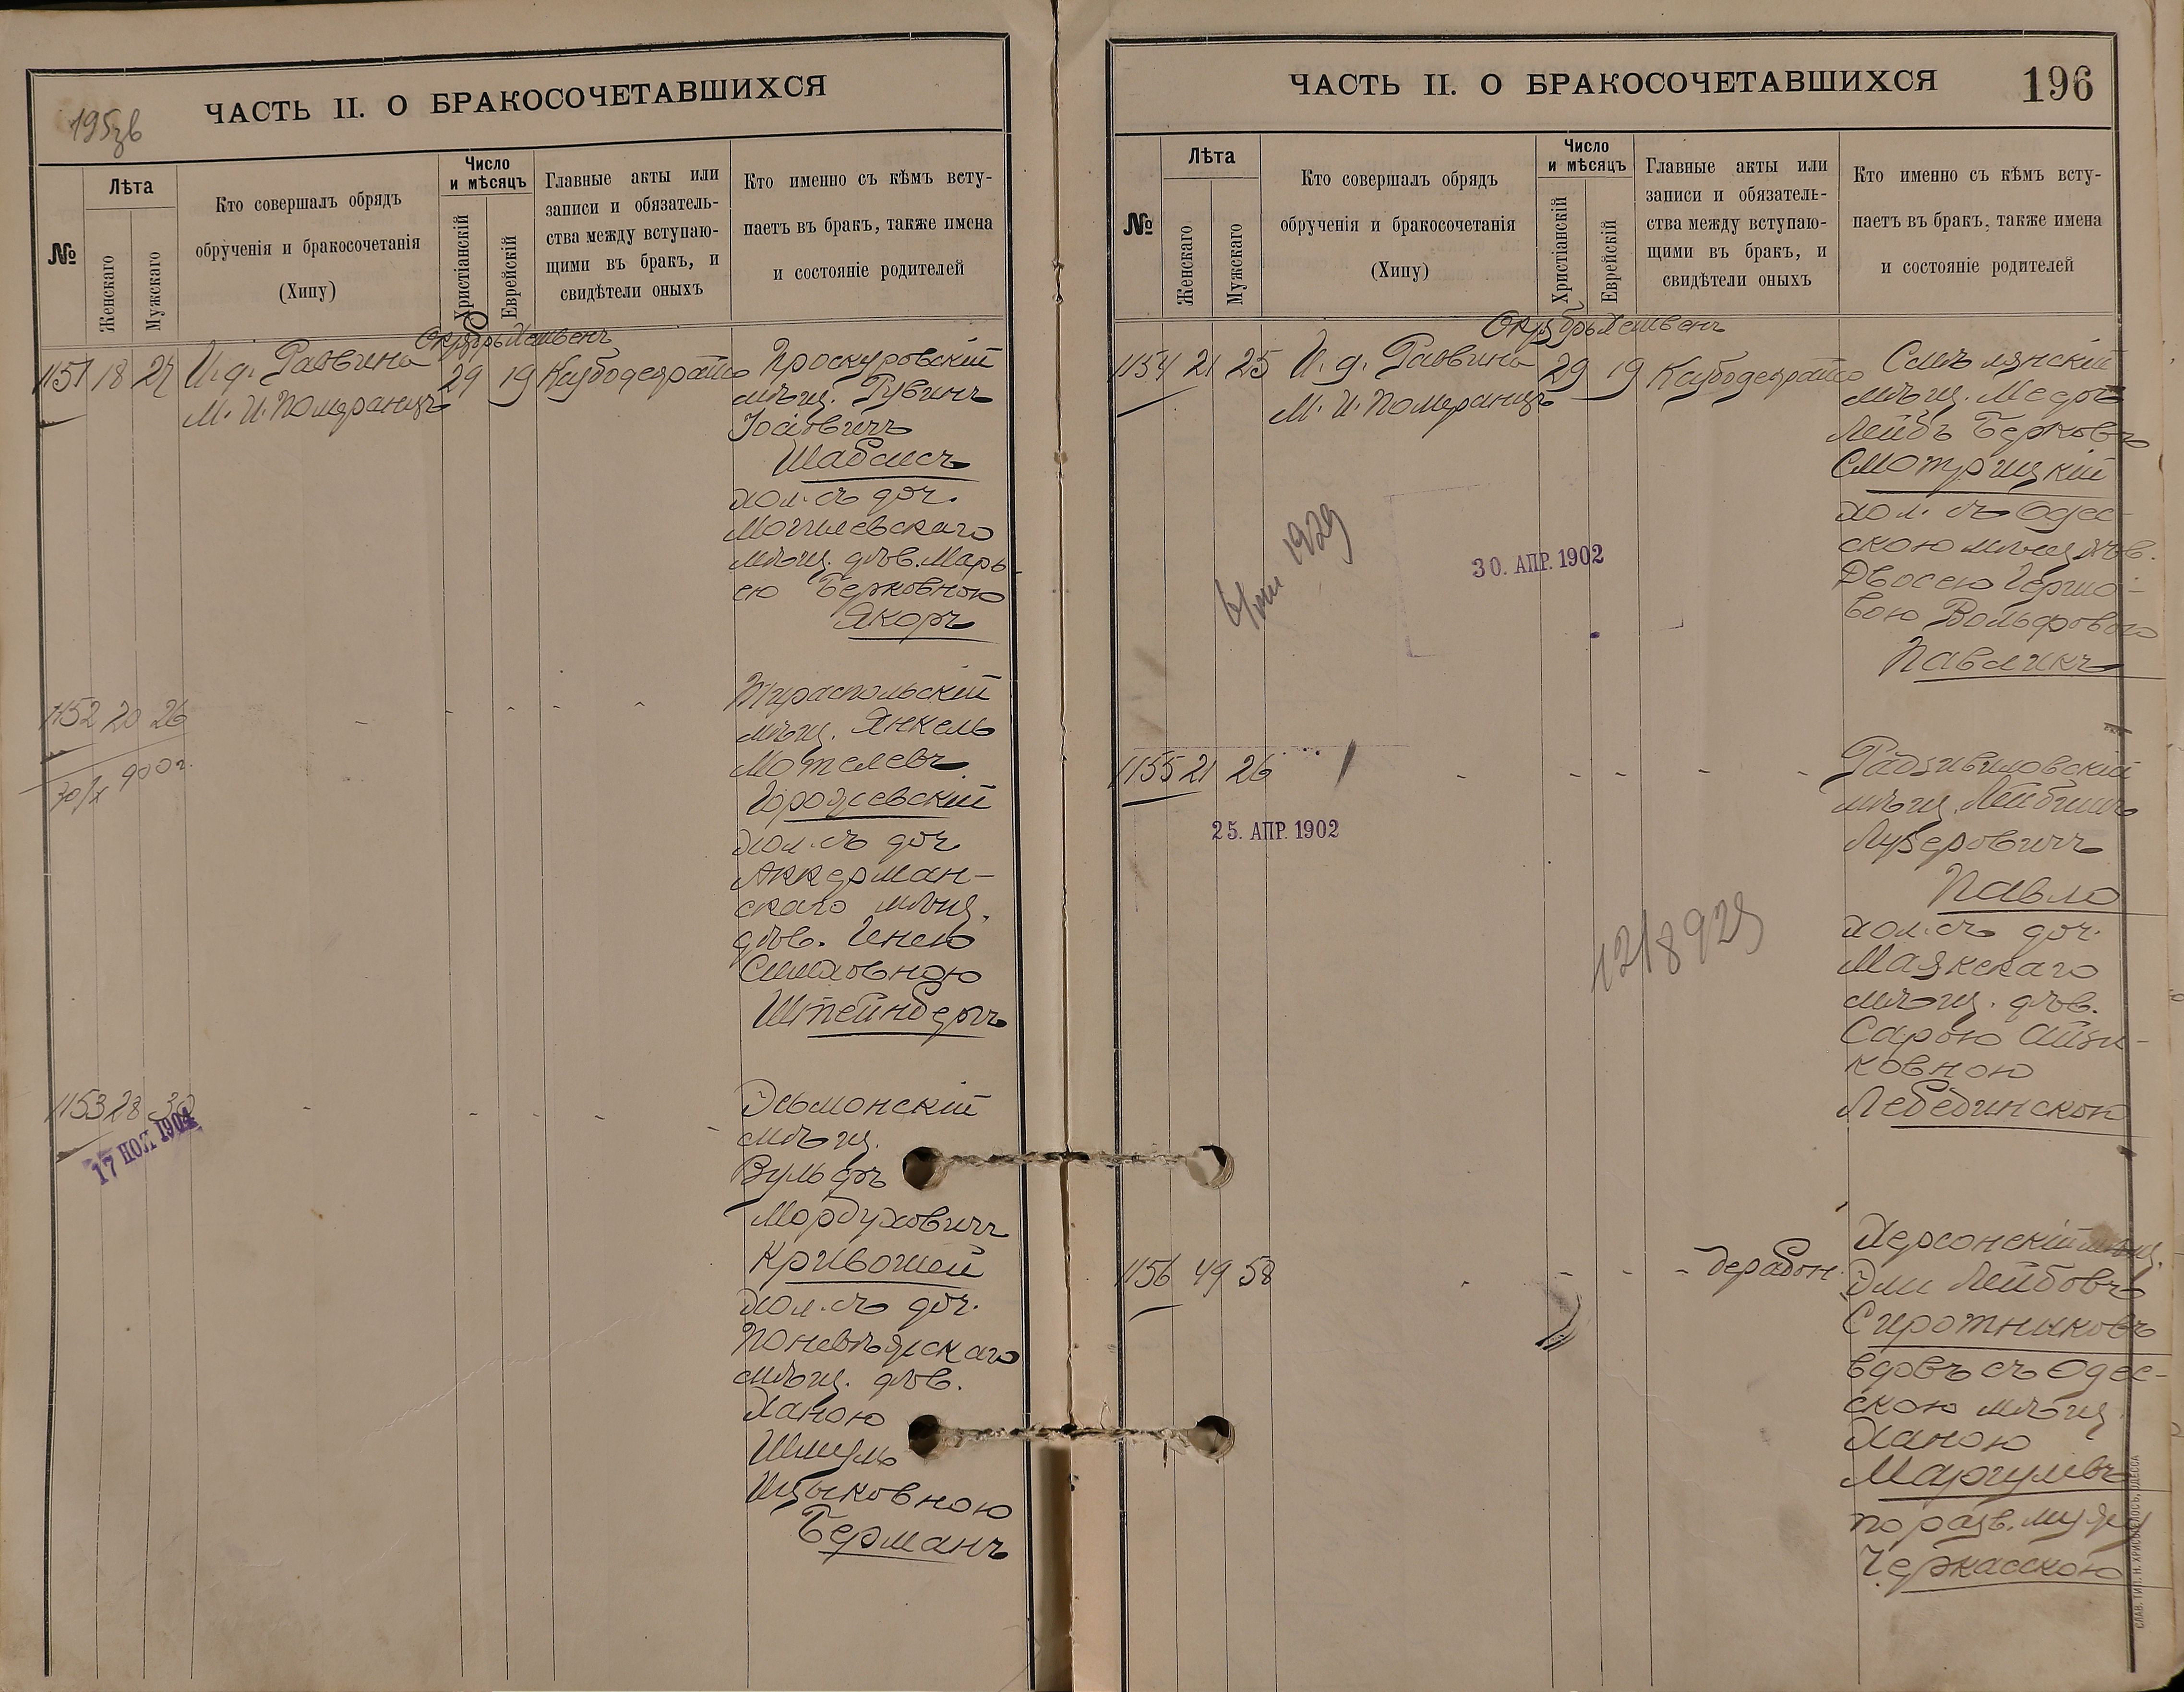 195зв
ЧАСТЬ II. О БРАКОСОЧЕТАВШИХСЯ
№
Лѣта
Женскаго
Мужскаго
Кто совершалъ обрядъ
обрученія и бракосочетанія
(Хипу)
Число
и мѣсяцъ
Христіанскій
Еврейскій
Главные акты или
записи и обязатель-
ства между вступаю-
щими въ бракъ, и
свидѣтели оныхъ
Кто именно съ кѣмъ всту-
паетъ въ бракъ, также имена
и состояніе родителей
Октябрь Хешвенъ
1151 18 24 И. д. Раввина 29 19
М. И. Померанцъ
Проскуровскій
мѣщ. Рувинъ
Шабсисъ
хол. съ доч.
Могилевскаго
мѣщ. дѣв. Марь-
ею Берковною
Якоръ
1152 20 26 - - - - -
30/X 900 г.
Тираспольскій
мѣщ. Янкель
Мотелевъ
Горожевскій
хол. съ доч.
Аккерман-
скаго мѣщ.
дѣв. Генею
Симховною
Штейнбергъ
1153 28 30 - - - - -
17 НОЯ 1904
мѣщ.
Вульфъ
Мордуховичъ
Кривошей
хол. съ доч.
Поневѣжскаго
мѣщ. дѣв.
Ханою
Шмуль
Ицыковною
Берманъ
ЧАСТЬ II. О БРАКОСОЧЕТАВШИХСЯ 196
№
Лѣта
Женскаго
Мужскаго
Кто совершалъ обрядъ
обрученія и бракосочетанія
(Хипу)
Число
и мѣсяцъ
Христіанскій
Еврейскій
Главные акты или
записи и обязатель-
ства между вступаю-
щими въ бракъ, и
свидѣтели оныхъ
Кто именно съ кѣмъ всту-
паетъ въ бракъ, также имена
и состояніе родителей
Октябрь Хешвенъ
1154 21 25 И. д. Раввина 29 19
М. И. Померанцъ
Смѣлянскій
мѣщ. Мееръ
Лейбъ Берковъ
Смотрицкій
хол. съ Одес-
скою мѣщ. дѣв.
Двосею Гершо-
вою Вольфовою
Павликъ
1929
30. АПР. 1902
1155 21 26 - - - - -
25. АПР. 1902
12/8 929
Радзивиловскій
мѣщ. Лейбишъ
Лузеровичъ
Павло
хол. съ доч.
Маякскаго
мѣщ. дѣв.
Сарою Айзи-
ковною
Лебединскою
1156 49 58 - - - -
Херсонскій мѣщ.
Эли Лейбовъ
Сиротниковъ
вдовъ съ Одес-
скою мѣщ.
Ханою
Маргулевъ
по разв. мужу
Черкасскою
СЛАВ. ТИП. Н. ХРИСОГЕЛОСЪ, ОДЕССА